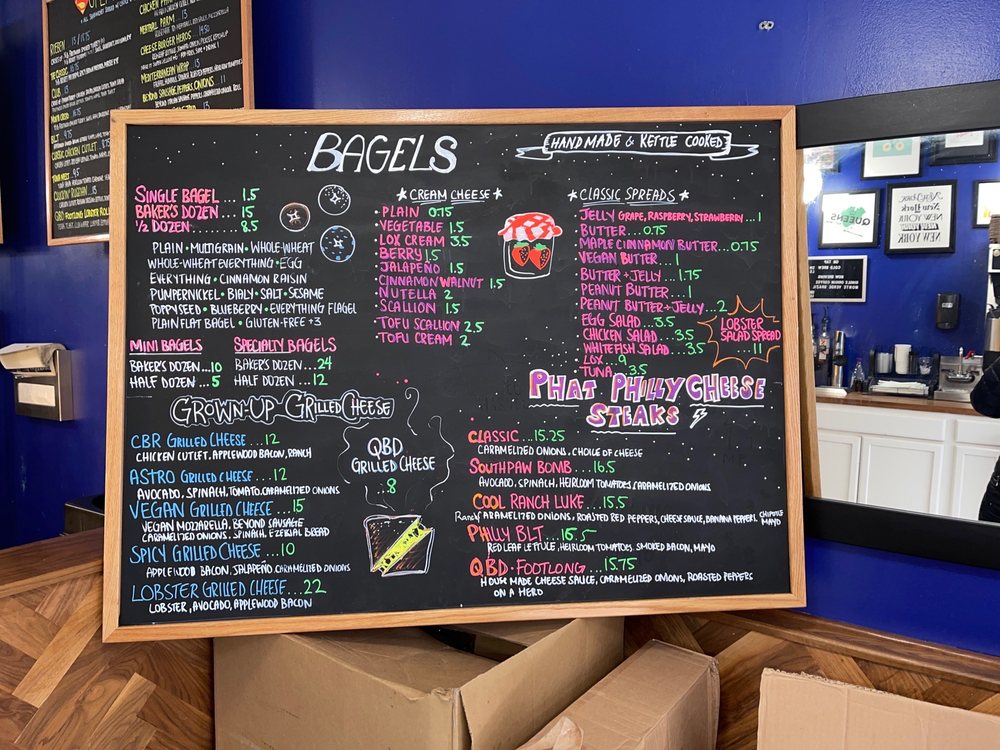 REUBEN 13/17.75
CLUB 13
BLT 9.75
CLASSIC CHICKEN CUTLET
MEATBALL PARM 13
CHEESEBURGER HEROS 14.50
MEDITERRANEAN WRAP 13
BEYOND SAUSAGE, PEPPERS, ONIONS 11
BAGELS
HANDMADE & KETTLE COOKED
SINGLE BAGEL 1.5
BAKER'S DOZEN ... 15
½ DOZEN ... 8.5
PLAIN • MULTIGRAIN • WHOLE-WHEAT
WHOLE-WHEAT EVERYTHING • EGG
EVERYTHING • CINNAMON RAISIN
PUMPERNICKEL • BIALY • SALT • SESAME
POPPYSEED • BLUEBERRY • EVERYTHING FLAGEL
PLAIN FLAT BAGEL • GLUTEN-FREE +3
MINI BAGELS
BAKER'S DOZEN ... 10
HALF DOZEN ... 5
SPECIALTY BAGELS
BAKER'S DOZEN ... 24
HALF DOZEN ... 12
CREAM CHEESE
• PLAIN 0.75
• VEGETABLE 1.5
• LOX CREAM 3.5
• BERRY 1.5
• JALAPEÑO 1.5
• CINNAMON WALNUT 1.5
• NUTELLA 2
• SCALLION 1.5
• TOFU SCALLION 2.5
• TOFU CREAM 2
CLASSIC SPREADS
• JELLY GRAPE, RASPBERRY, STRAWBERRY ... 1
• BUTTER ... 0.75
• MAPLE CINNAMON BUTTER ... 0.75
• VEGAN BUTTER ... 1
• BUTTER + JELLY ... 1.75
• PEANUT BUTTER ... 1
• PEANUT BUTTER + JELLY ... 2
• EGG SALAD ... 3.5
• CHICKEN SALAD ... 3.5
• WHITEFISH SALAD ... 3.5
• LOX ... 9
• TUNA ... 3.5
LOBSTER
SALAD SPREAD
... 11
GROWN-UP GRILLED CHEESE
CBR GRILLED CHEESE ... 12
CHICKEN CUTLET, APPLEWOOD BACON, RANCH
ASTRO GRILLED CHEESE ... 12
AVOCADO, SPINACH, TOMATO, CARAMELIZED ONIONS
VEGAN GRILLED CHEESE ... 15
VEGAN MOZZARELLA, BEYOND SAUSAGE
CARAMELIZED ONIONS, SPINACH, EZEKIAL BREAD
SPICY GRILLED CHEESE ... 10
APPLEWOOD BACON, JALAPEÑO CARAMELIZED ONIONS
LOBSTER GRILLED CHEESE ... 22
LOBSTER, AVOCADO, APPLEWOOD BACON
QBD
GRILLED CHEESE
.. 8
PHAT PHILLY CHEESE
STEAKS
CLASSIC ... 15.25
CARAMELIZED ONIONS, CHOICE OF CHEESE
SOUTHPAW BOMB ... 16.5
AVOCADO, SPINACH, HEIRLOOM TOMATOES, CARAMELIZED ONIONS
COOL RANCH LUKE ... 15.5
Ranch, CARAMELIZED ONIONS, ROASTED RED PEPPERS, CHEESE SAUCE, BANANA PEPPERS, CHIPOTLE MAYO
PHILLY BLT ... 16.5
RED LEAF LETTUCE, HEIRLOOM TOMATOES, SMOKED BACON, MAYO
QBD • FOOTLONG ... 15.75
HOUSE MADE CHEESE SAUCE, CARAMELIZED ONIONS, ROASTED PEPPERS
ON A HERO
QUEENS
New York
NEW YORK
NEW YORK